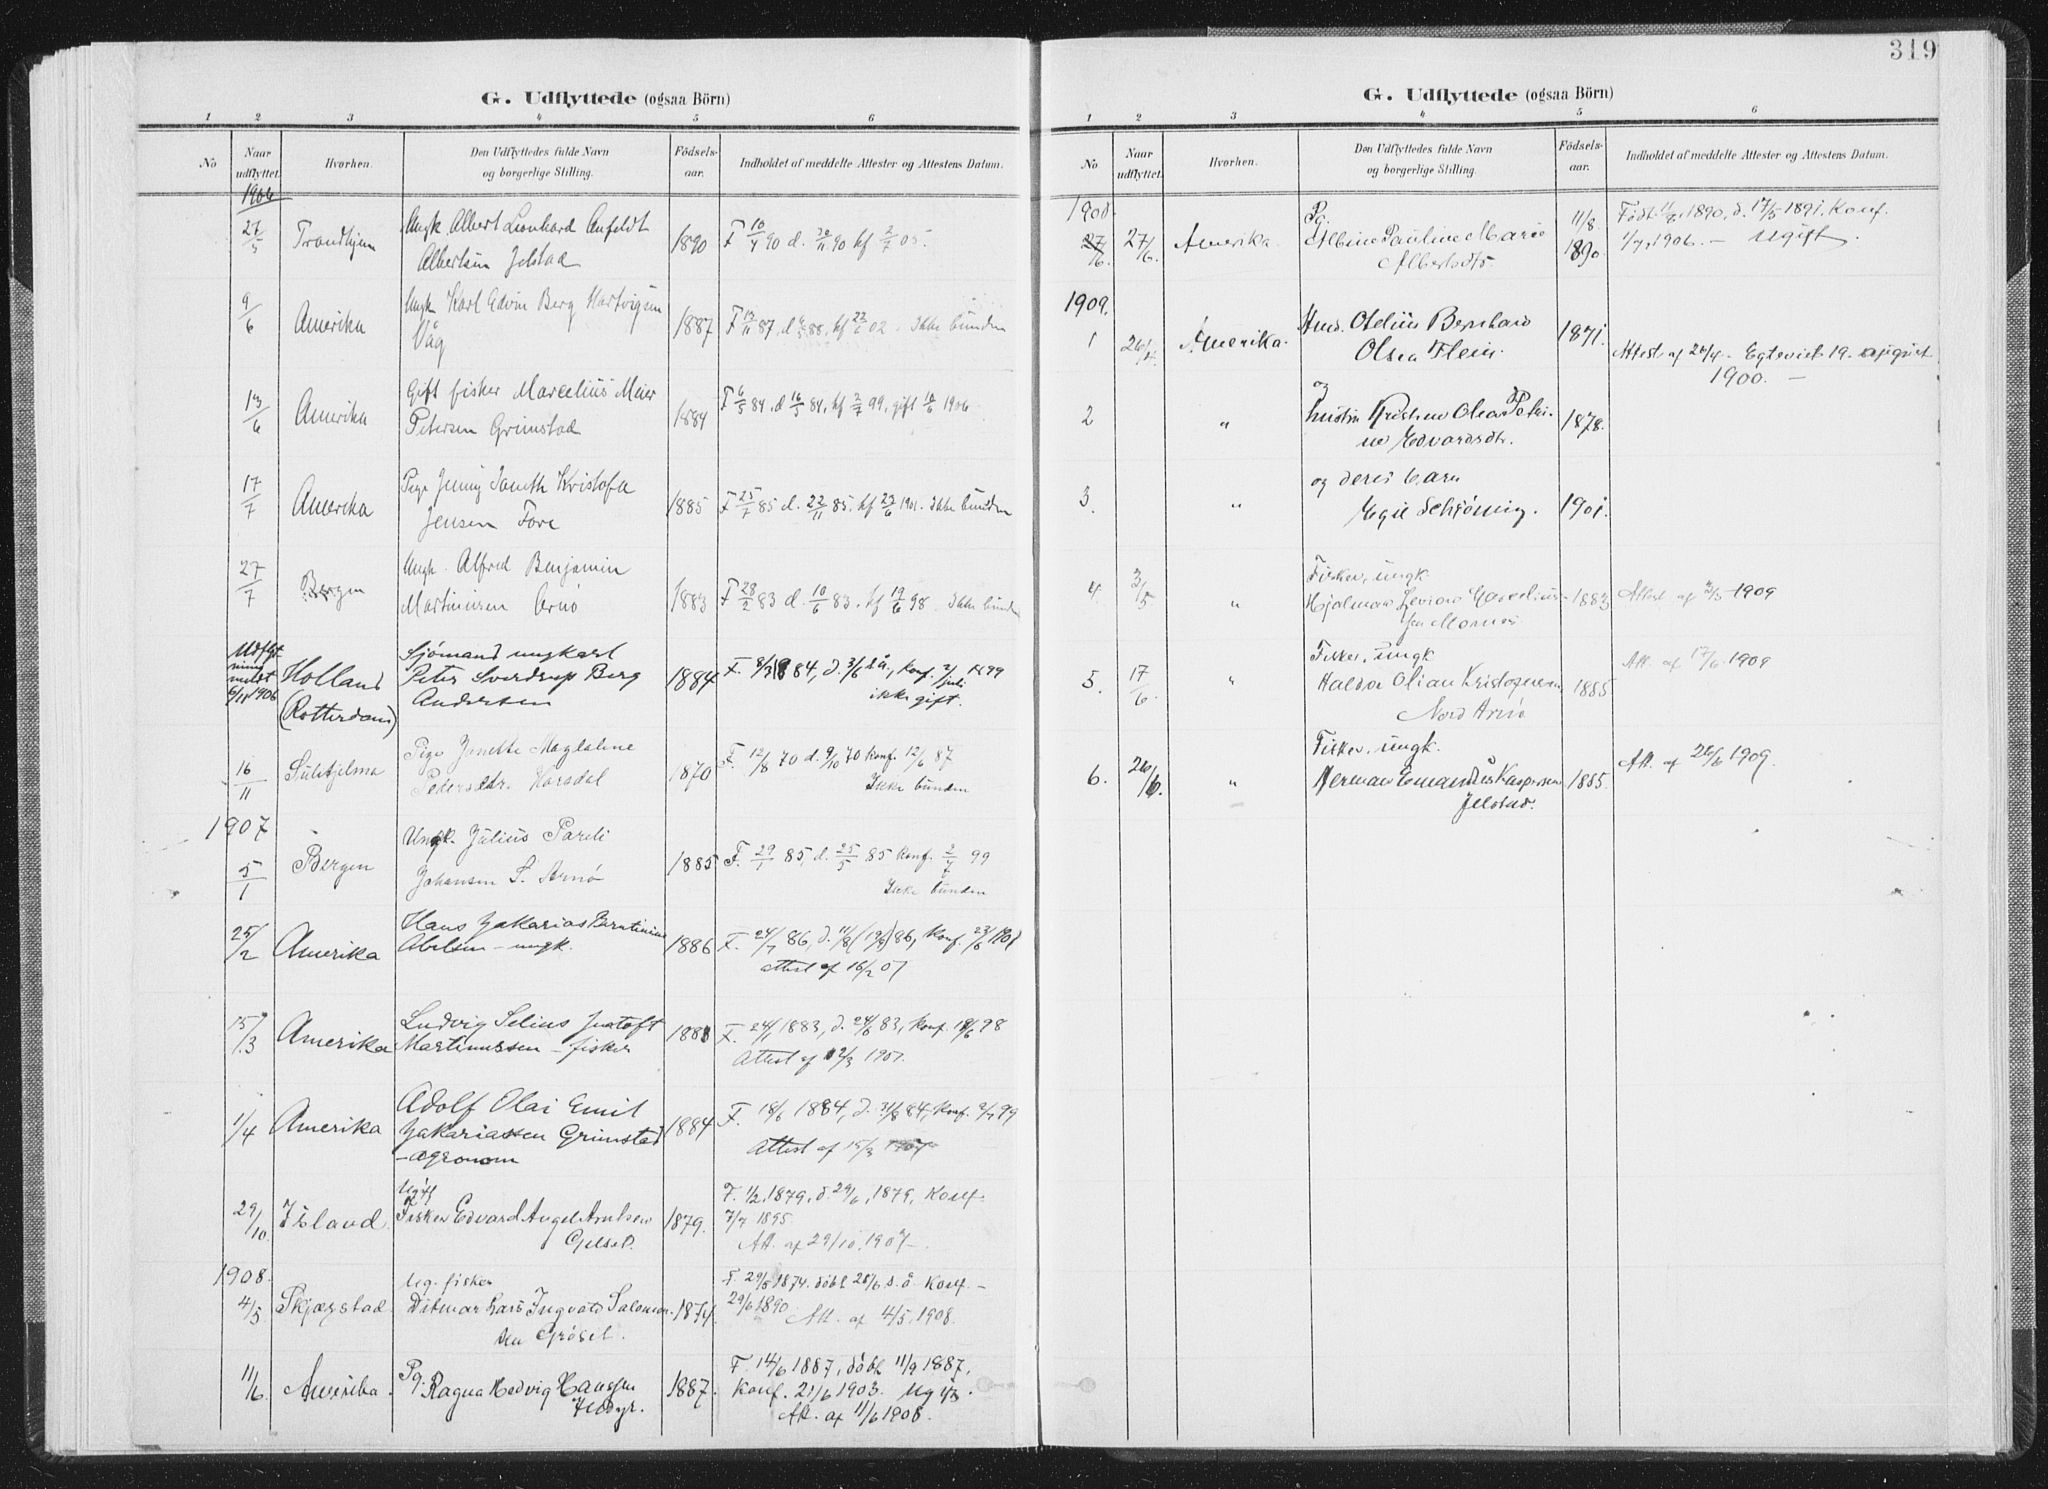 319
G. Udflyttede (ogsaa Börn)
1 2 3 4 5 6
No
Naar udflyttet.
Hvorhen.
Den Udflyttedes fulde Navn
og borgerlige Stilling.
Fødsels-
aar.
Indholdet af meddelte Attester og Attestens Datum.
1906
27/5 Trondhjem Ungk Albert Leonhard Anfeldt
Albertsen Jelstad 1890 F 10/4 90 d. 30/11 90 kf 2/7 05.
9/6 Amerika Ungk Karl Edvin Berg Hartvigsen
Våg 1887 F 13/11 87, d 88, kf 22/6 02. Ikke bunden
13/6 Amerika Gift fisker Marcelius Meier
Petersen Grimstad 1884 F 6/5 84, d 16/5 84, kf 2/7 99, gift 10/6 1906
17/7 Amerika Pige Jenny Janeth Kristofa
Jensen Fore 1885 F 25/7 85 d. 22/11 85. kf 23/6 1901. Ikke bunden
27/7 Bergen Ungk. Alfred Benjamin
Martinusen Arnø 1883 F 28/2 83 d. 10/6 83. kf 19/6 98. Ikke bunden
Udflyt-
ning
meldt
6/11 1906
Holland
(Rotterdam)
Sjömand ungkarl
Peter Sverdrup Berg
Andersen
1884
F. 8/3 1884, d. 3/6 s.å., konf. 2/juli 1899
ikke gift.
16/11 Sulitjelma Pige Janette Magdalene
Pedersdtr. Horsdal 1870 F. 12/8 70 d. 9/10 70 konf. 12/6 87
Ikke bunden
1907
5/1 Bergen Ungk. Julius Pareli
Johansen S. Arnö 1885 F. 29/1 85, d. 25/5 85 konf. 2/7 99
Ikke bunden
25/2 Amerika Hans Zakarias Berntinius
Abelsen – ungk. 1886 F. 24/7 86, d. 11/8 (19/9) 86, konf. 23/6 1901
attest af 16/2 07
15/3 Amerika Ludvig Selius Justoft
Martinussen – fisker 1883 F. 24/1 1883, d. 24/6 83, konf. 19/6 98
Attest af 12/3 1907.
1/4 Amerika Adolf Olai Emil
Zakariassen Grimstad
– agronom 1884 F. 18/6 1884, d. 31/8 84, konf. 2/7 99
Attest af 15/3 1907
29/10 Island Ug.
Fisker Edvard Angel Arntsen
Gjelset. 1879. F. 1/2, 1879, d. 29/6, 1879, konf.
7/7 1895.
Att. af 29/10, 1907.
1908.
4/5 Skjærstad Ug. fisker
Ditmar Lars Ingvald Salomon-
sen Gröset. 1874. F. 29/5 1874. döbt 28/6 s. å konf. –
29/6 1890 Att. af 4/5. 1908.
11/6 Amerika. Pg. Ragna Hedvig Hanssen
1887. F. 14/6 1887, döbt 11/9 1887,
konf. 21/6 1903. Ugift.
Att. af 11/6 1908.
G. Udflyttede (ogsaa Börn)
1 2 3 4 5 6
No
Naar udflyttet.
Hvorhen.
Den Udflyttedes fulde Navn
og borgerlige Stilling.
Fødsels-
aar.
Indholdet af meddelte Attester og Attestens Datum.
1908
27/6. 27/6. Amerika. Pg.
Albine Pauline Marie
Albertsdtr. 11/8. 1890 Født 11/8, 1890, d. 17/5 1891, konf.
1/7, 1906. – Ugift.
1909.
1 26/4. Amerika. Hmd. Otelius Bernhard
Olsen Flein. 1871. Attest af 26/4. – Egteviet 19. august
1900. –
2 " og
hustru Kristine Olea Petri-
ne Edvardsdtr. 1878.
3. " og deres barn
Egil Schjöning. 1901.
4. 3/5 " Fisker, ungk.
Hjalmar Marcelius-
sen Mornes 1883 Attest af 3/5 1909
5. 17/6. " Fisker, ungk.
Haldor Olian Kristofersen
Nord Arnö 1885 Att. af 17/6. 1909
6. 26/6. " Fisker, ungk.
Herman Kaspersen
Jelstad. 1885. Att. af 26/6 1909.